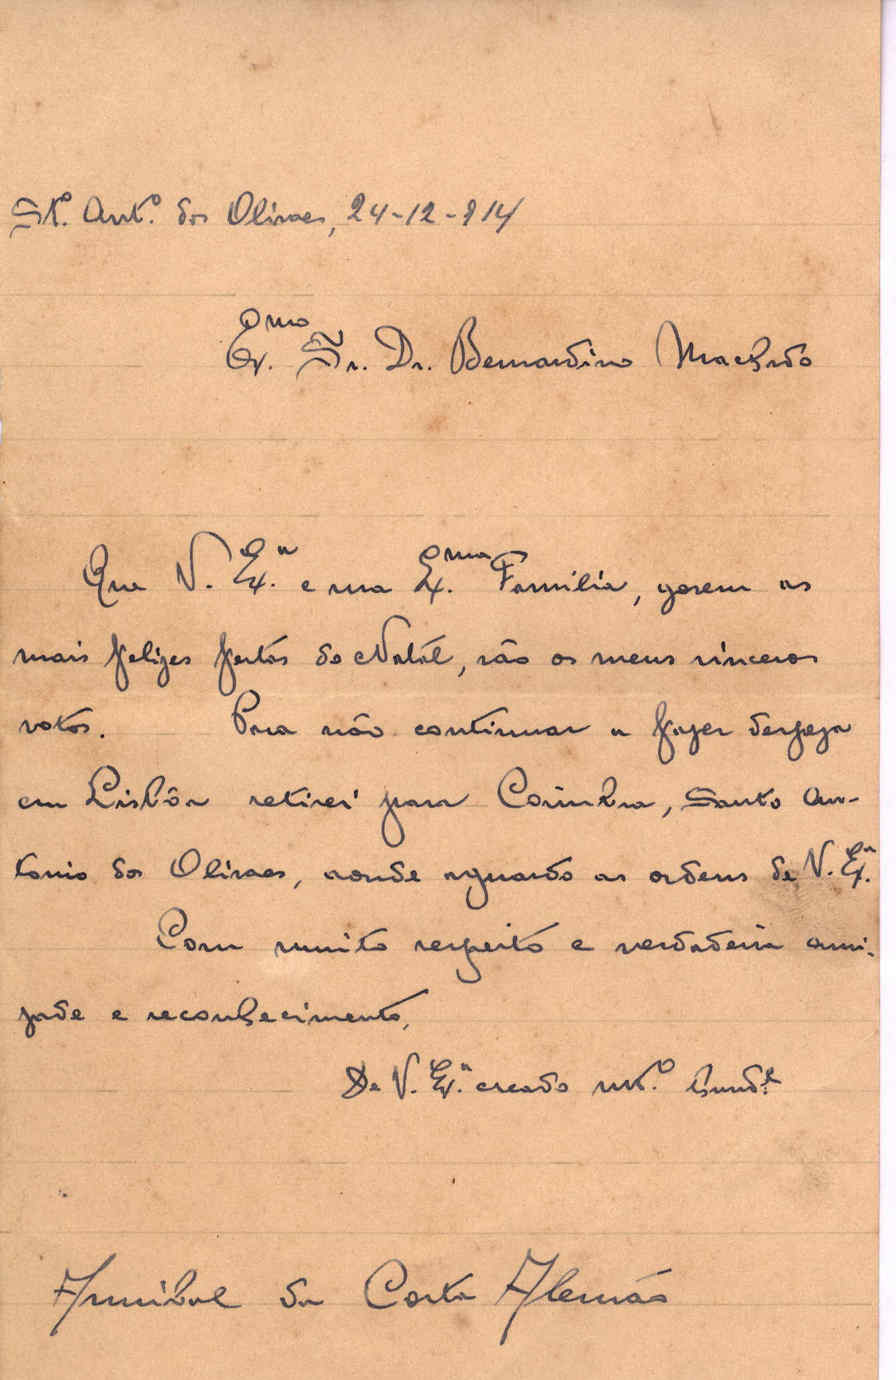 Stº. Antº. dos Olivaes, 24-12-914
Exmo. Sr. Dr. Bernardino Machado
Que V. Exª. e sua Exma. Familia, gosem as
mais felizes festas do Natál, são os meus sinceros
votos. Para não continuar a fazer despeza
em Lisbôa retirei para Coimbra, Santo An-
tonio dos Olivaes, aonde aguardo as ordens de V. Exª.
Com muito respeito e verdadeira ami-
zade e reconhecimento,
De V. Exª. creado mtº. humdᵉ
Annibal da Costa Alemão